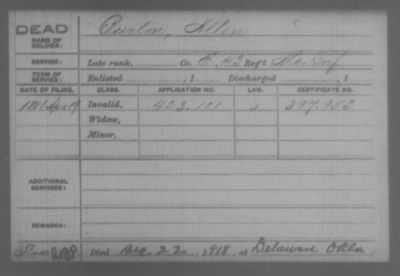 DEAD
NAME OF SOLDIER: Allen
SERVICE: Late rank, Co. E, 43 Reg't Mo. Inf
TERM OF SERVICE: Enlisted , 1 Discharged , 1
DATE OF FILING. CLASS. APPLICATION NO. LAW. CERTIFICATE NO.
1881 Apr 19 Invalid, 423.101 297.952
Widow,
Minor,
ADDITIONAL SERVICES:
REMARKS:
Died Dec. 22, 1918, at Delaware Okla